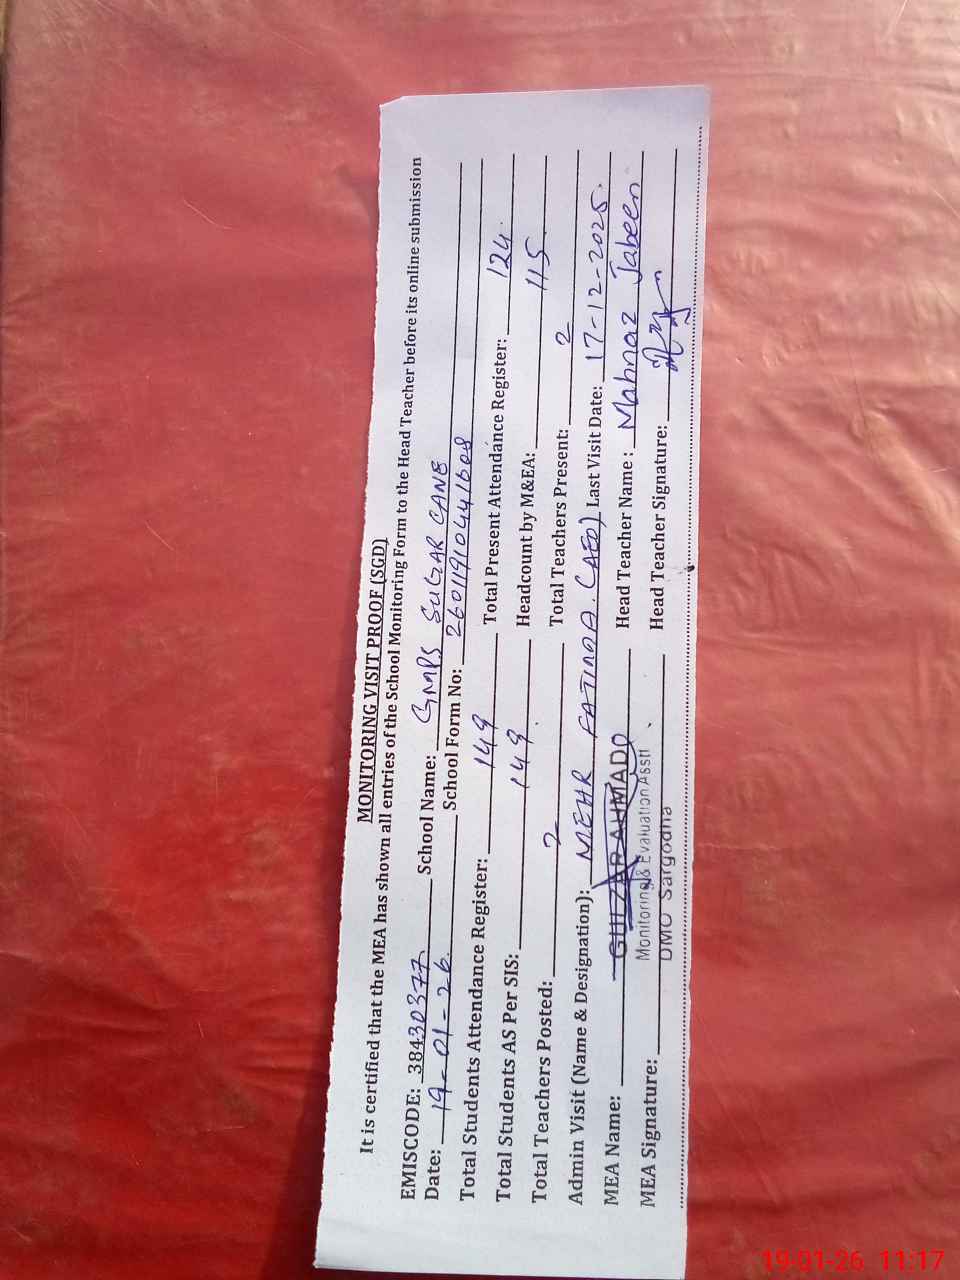 MONITORING VISIT PROOF (SGD)
It is certified that the MEA has shown all entries of the School Monitoring Form to the Head Teacher before its online submission
EMISCODE: 38430377 School Name: GMPS SUGAR CANE
Date: 19-01-26 School Form No: 26011910441608
Total Students Attendance Register: 149 Total Present Attendance Register: 124
Total Students AS Per SIS: 149 Headcount by M&EA: 115
Total Teachers Posted: 2 Total Teachers Present: 2
Admin Visit (Name & Designation): MEHR FATIMA. (AEO) Last Visit Date: 17-12-2025.
MEA Name: GULZAR AHMAD Head Teacher Name: Mahnaz Jabeen
Monitoring & Evaluation Asstt
MEA Signature: DMO Sargodha Head Teacher Signature:
19-01-26 11:17